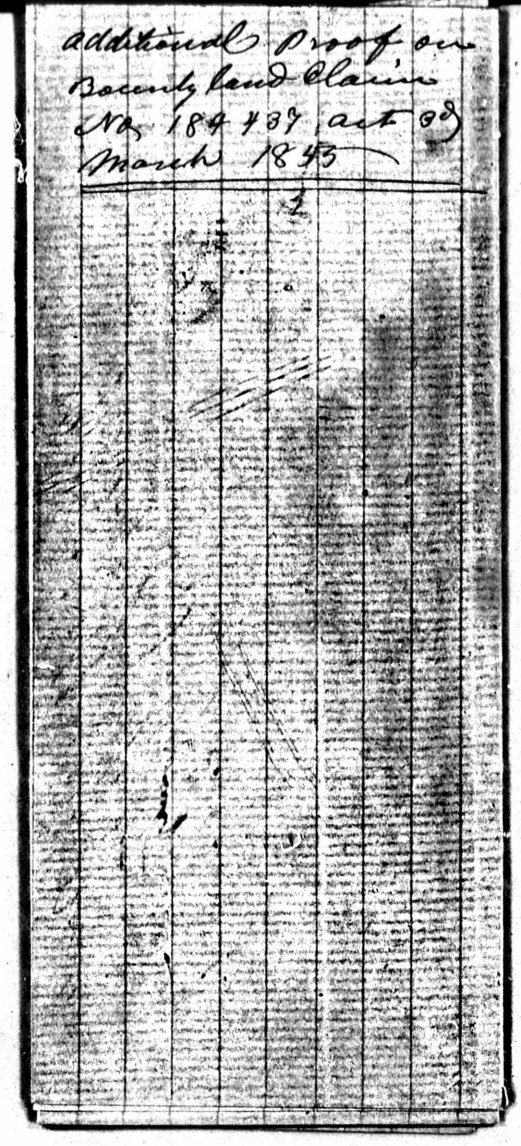 additional Proof on
Bounty land Claim
No, 184 437, act 3d
March 1855